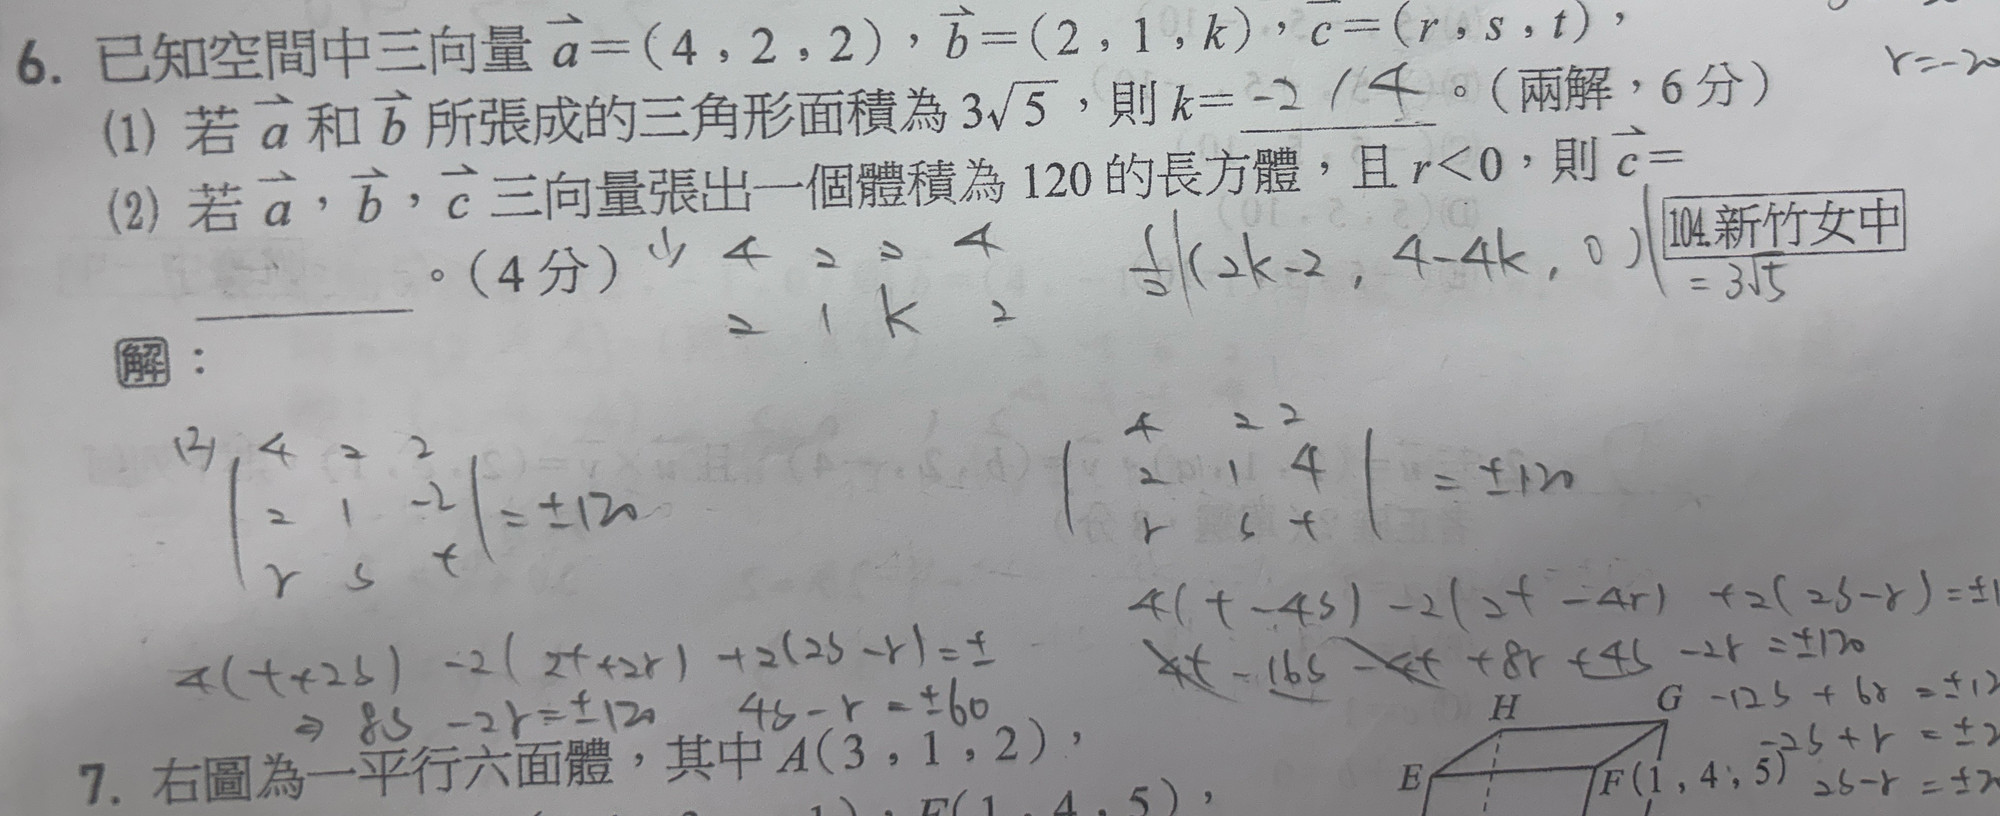 6. 已知空間中三向量 a=(4,2,2),b=(2,1,k),c=(r,s,t),
r=-20
(1) 若 a 和 b 所張成的三角形面積為 3√5,則 k= -2 / 4 。(兩解,6分)
(2) 若 a,b,c 三向量張出一個體積為 120 的長方體,且 r<0,則 c=
。(4分)
104.新竹女中
(1) 4 2 2 4
2 1 k 2
1/2|(2k-2, 4-4k, 0)| = 3√5
解:
(2) | 4 2 2
2 1 -2
r s t | = ±120
4(t+2s) -2(2t+2r) +2(2s-r)=±
⇒ 8s -2r=±120 4s-r=±60
| 4 2 2
2 1 4
r s t | = ±120
4(t-4s) -2(2t-4r) +2(2s-r)=±1
4t-16s-4t+8r+4s-2r=±120
-12s+6r=±12
-2s+r=±2
2s-r=±2
7. 右圖為一平行六面體,其中 A(3,1,2),
F(1,4,5),
H G
E F(1,4,5)